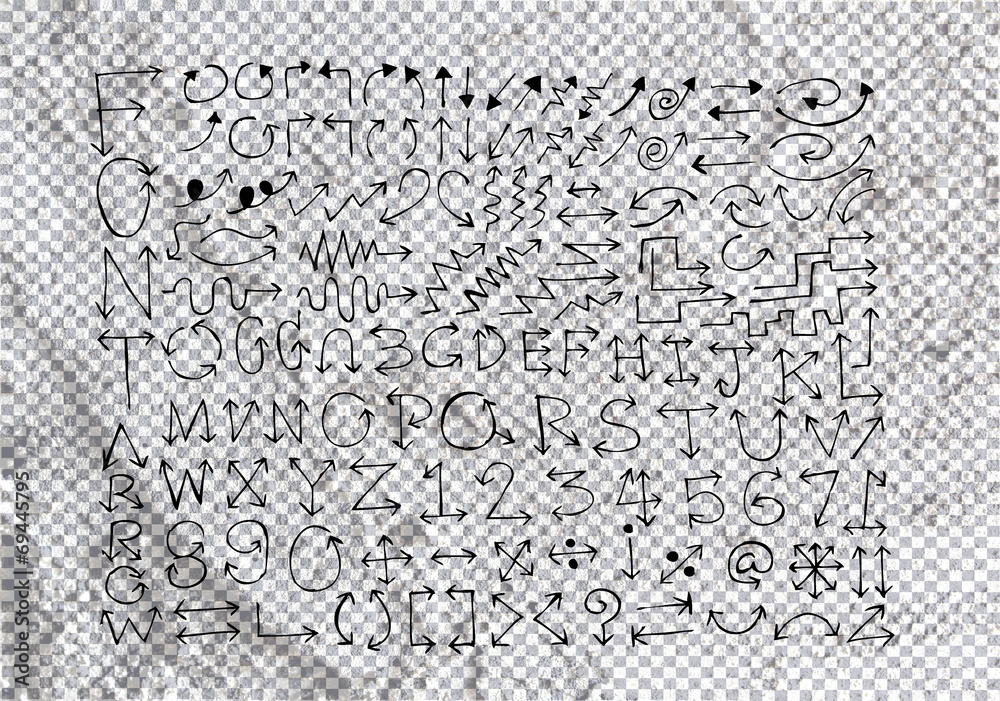 F
O
N
T G G A B C D E F H I J K L
M N O P Q R S T U V
A
R W X Y Z 1 2 3 4 5 6 7
R 8 9 0 + - × ÷ ! % @ *
O
W ( ) [ ] > < ?
Adobe Stock | #69445795